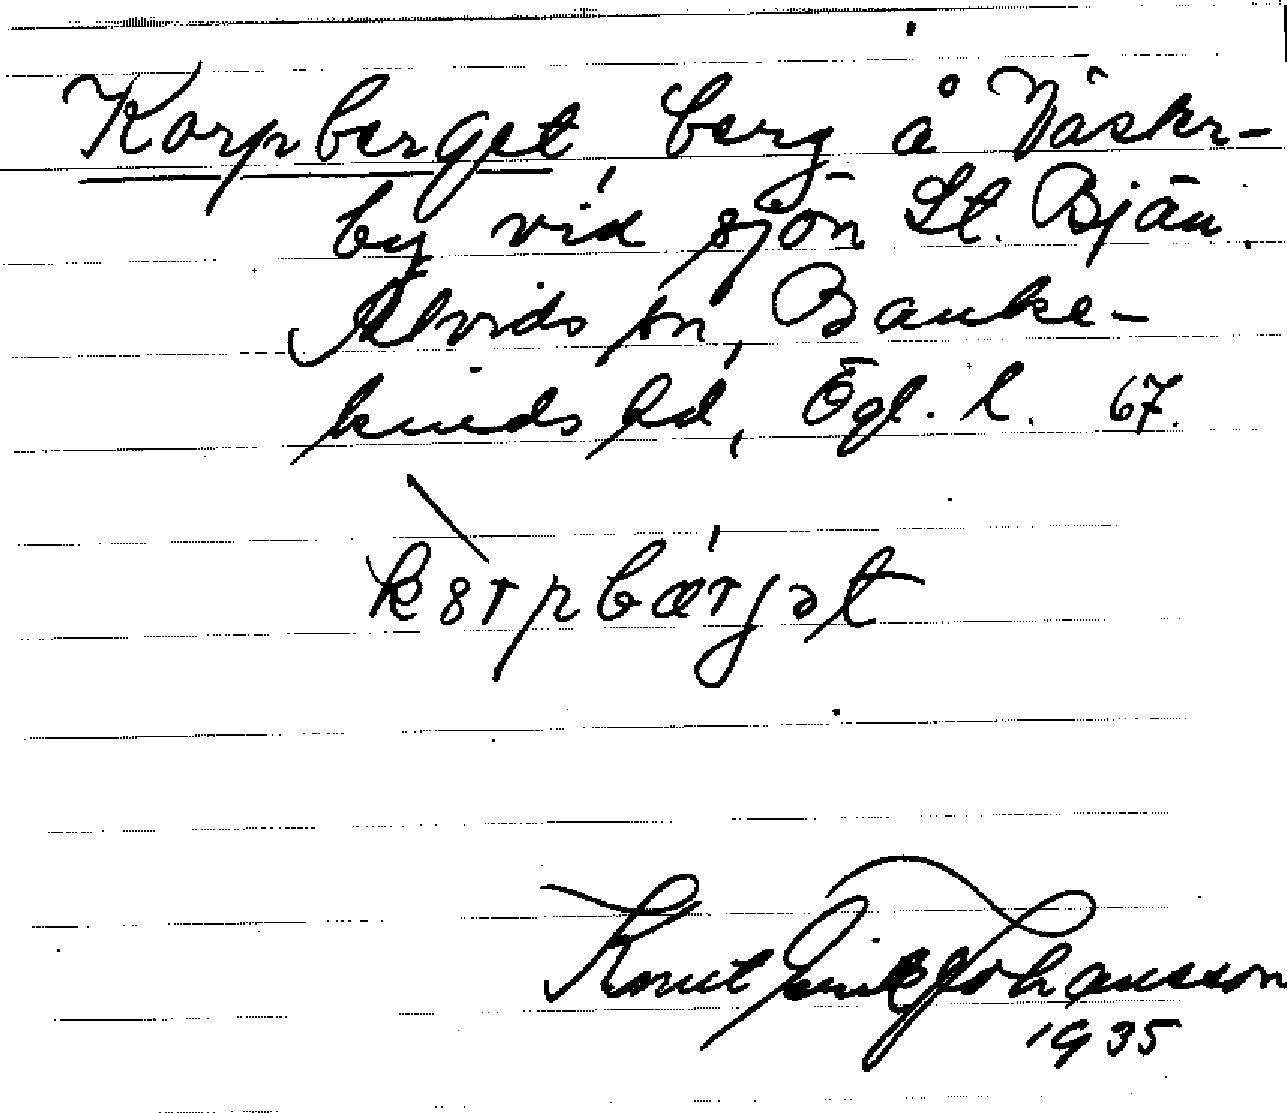 Korpberget berg å Väskr-
by vid sjön St. Bjän
Alvids sn, Banke-
kinds hd, Ögl. l. 67.
k8rpbærjət
Knut Erik Johansson
1935